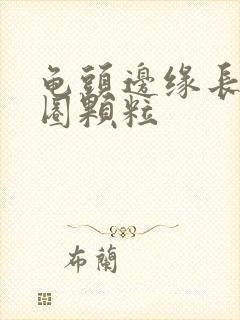 龟頭邊缘長
圏顆粒
布蘭